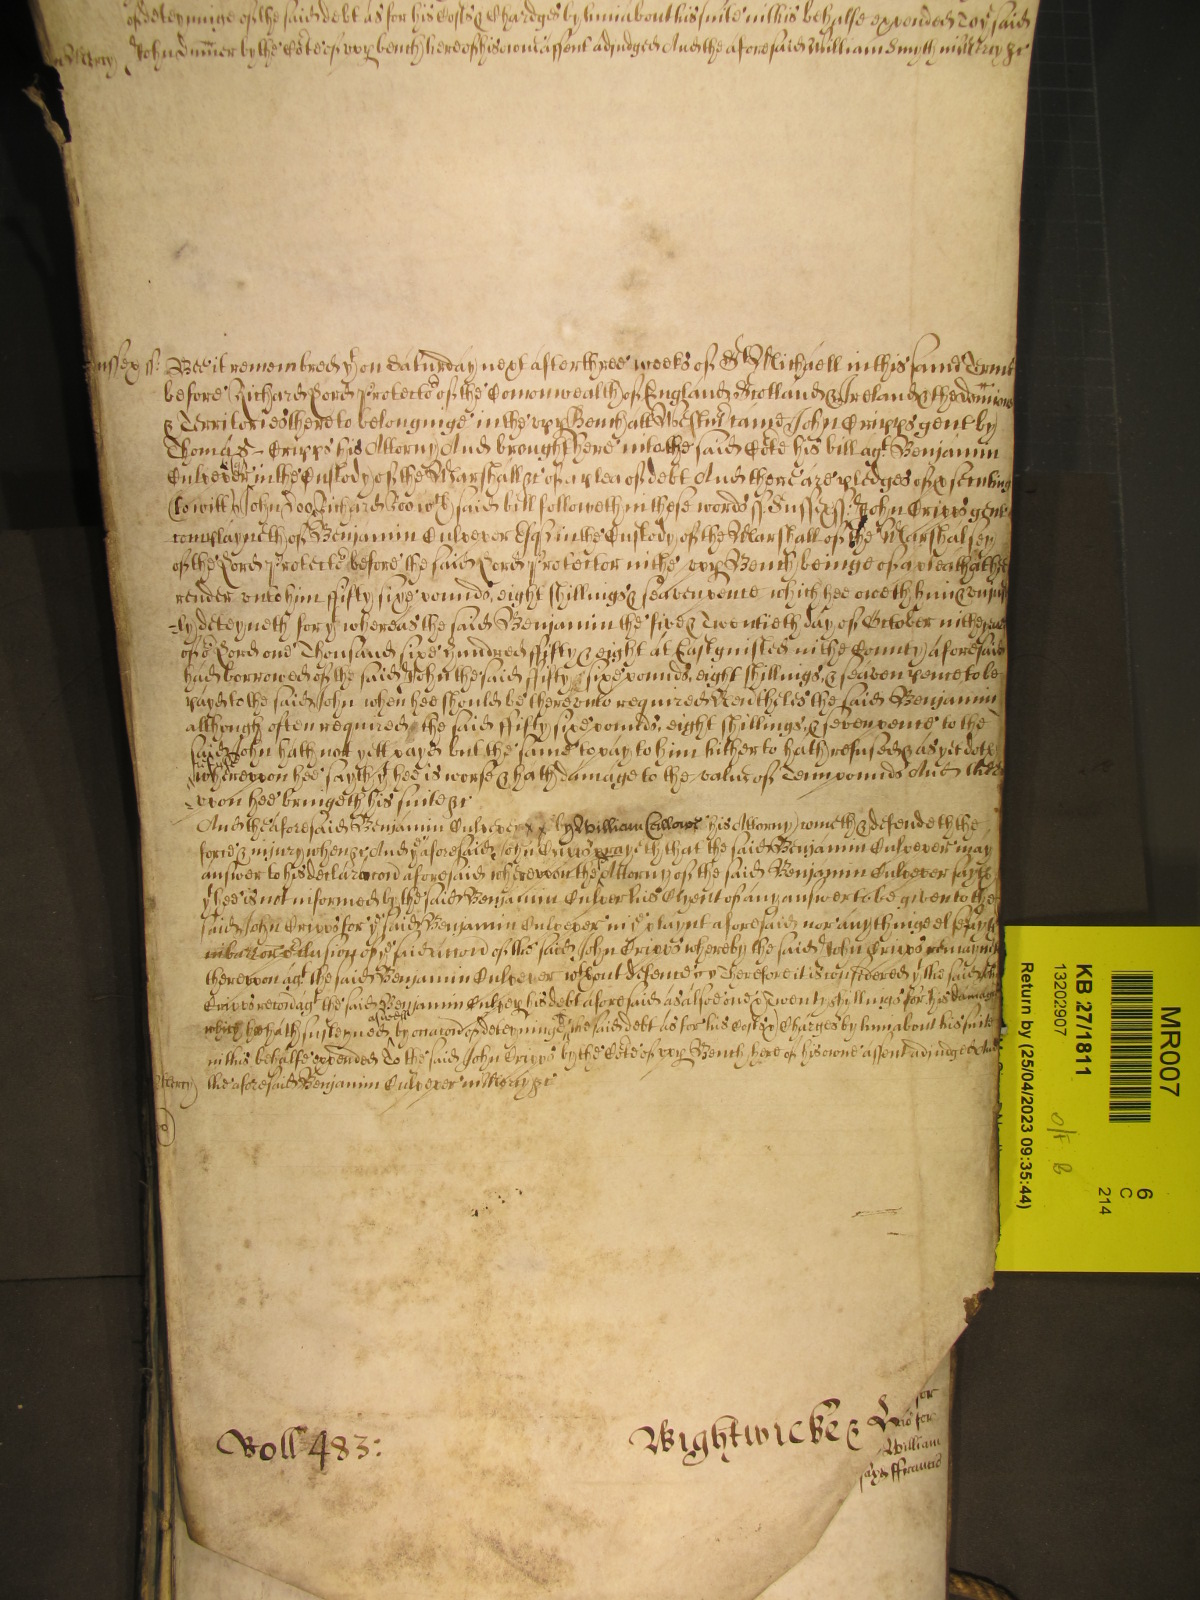 of deteyninge of the said debt as for his Costs & Chardges by him about his suite in this behalfe expended To ye said
John by the Cote of vpp bench here of his owne assent adjudged And the aforesaid William Smyth in Mercy &c
Sussex ss: Bee it remembred yt on Saturday next after three weeks of St Michaell in this same Terme
before Richard Lord Protector of the Comonwealth of England Scotland & Ireland & the Dominions
& Territories thereto belonginge in the vpp Bench att Westm came John Cripps gent by
Thomas Cripps his Attorny And brought here into the said Cote his bill agt Benjamin
Culpeper in the Custody of the Marshall &c of a plea of debt And there are pledges of prosecuting
(to witt) John Doo & Richard Roo wch said bill followeth in these words ss. Sussex ss: John Cripps gent
complayneth of Benjamin Culpeper Esqr in the Custody of the Marshall of the Marshalsey
of the Lord Protector before the said Lord Protector in the vpp Bench beinge of a plea that he
render vnto him ffifty sixe pounds, eight shillings & seaven pence which hee oweth him & vnjust
-ly deteyneth for yt whereas the said Benjamin the sixe & Twentieth day of October in the yeare
of or Lord one Thousand sixe hundred ffifty & eight at Eastgrinsted in the County aforesaid
had borrowed of the said John the said ffifty sixe pounds, eight shillings, & seaven pence to be
payd to the said John when hee should be therevnto required Neverthelesse the said Benjamin
although often required the said ffifty sixe pounds, eight shillings, & seven pence to the
said John hath not yett payd but the same to pay to him hitherto hath refused & as yet doth
wherevpon hee sayth yt hee is worse & hath damage to the value of Tenn pounds And there
vpon hee bringeth his suite &c
And the aforesaid Benjamin Culpeper by William his Attorny cometh & defendeth the
force & injury when &c And ye aforesaid John Cripps prayeth that the said Benjamin Culpeper may
answer to his declaracon aforesaid wherevpon the Attorny of the said Benjamin Culpeper sayth
yt hee is not informed by the said Benjamin Culpeper his Clyent of any answer to be given to the
said John Cripps for ye said Benjamin Culpeper in ye playnt aforesaid nor any thinge else sayth
in barr or of ye said accon of the said John Cripps whereby the said John Cripps remayneth
therevpon agt the said Benjamin Culpeper wthout defence &c Therefore it is considered yt the said John
Cripps recover agt the said Benjamin Culpeper his debt aforesaid as alsoe one & Twenty shillings for his damages
which hee hath susteyned aswell by occacon of deteyninge the said debt as for his Costs & Charges by him about his suite
in this behalfe expended To the said John Cripps by the Cote of vpp Bench here of his owne assent adjudged And
Mercy the aforesaid Benjamin Culpeper in Mercy &c
Roll 483:
Wightwicke &
for
William
ffrancis
MR007
KB 27/1811
13202907
Return by (25/04/2023 09:35:44)
O/F B
6
C
214